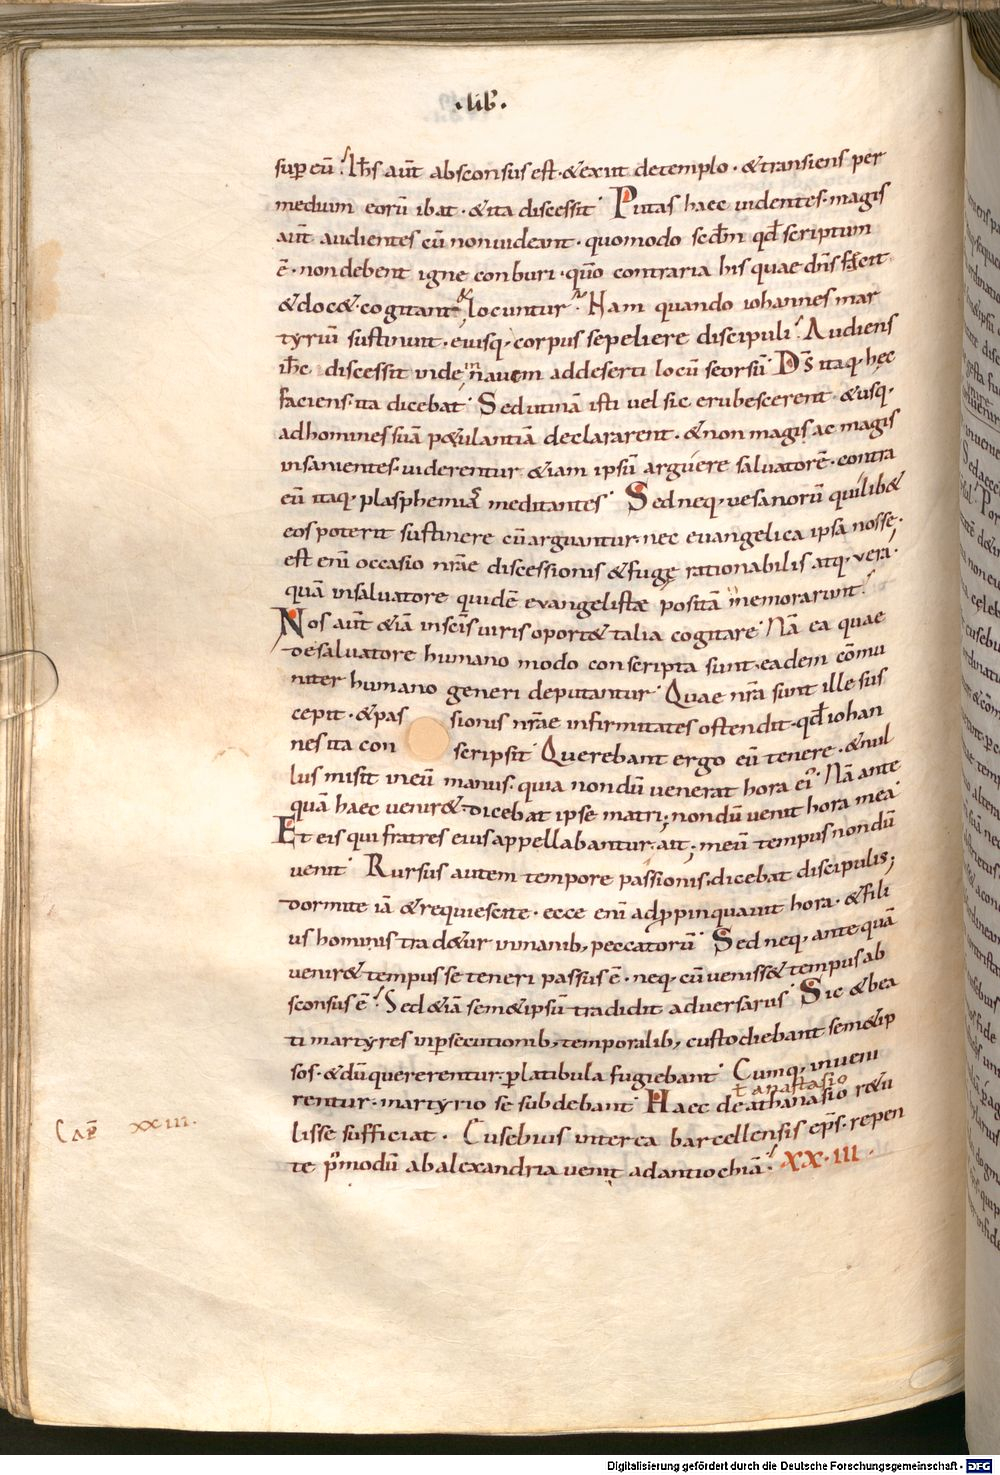 ·lib̅·
sup̲ eu̅. Ih̅s aut̅ absconsus est · &exiit detemplo · &transiens per
medium eoru̅ ibat · &ita discessit. Putas haec uidentes · magis
aut̅ audientes eu̅ nonuideant · quomodo sedm̅ qd̅ scriptum
e̅ · nondebent igne conburi · quo̅ contraria his quae dn̅s fecit
&doc& · cogitant & locuntur. Nam quando iohannes mar
tyriu̅ sustinuit · eiusq; corpus sepeliere discipuli. Audiens
ih̅c discessit inde in nauem addeserti locu̅ seorsu̅. Dn̅s itaq; hęc
faciens · ita dicebat. Sedutina̅ isti uel sic erubescerent · &usq;
adhomines sua̅ p&ulantia̅ declararent · &non magis ac magis
insanientes · uiderentur &iam ipsu̅ arguere saluatore̅ · contra
eu̅ itaq; plasphemia̅ meditantes. Sedneq; uesanoru̅ quilib&
eos poterit sustinere cu̅arguantur · nec euangelica ipsa nosse ·
est eni̅ occasio nr̅ae discessionis &fugę rationabilis atq; vera ·
qua̅ insaluatore quide̅ evangelistae posita̅ memorarunt.
Nos aut̅ &ia̅ insc̅is uiris oport& talia cogitare. Na̅ ea quae
desaluatore humano modo conscripta sunt · eadem co̅mu
niter humano generi deputantur. Quae nr̅a sunt ille sus
cepit · &pas sionis nr̅ae infirmitates ostendit · qd̅ iohan
nes ita con scripsit. Querebant ergo eu̅ tenere · &nul
lus misit ineu̅ manus · quia nondu̅ uenerat hora ei'. Na̅ ante
qua̅ haec uenir& · dicebat ipse matri; nondu̅ uenit hora mea
Et eis qui fratres eius appellabantur · ait; meu̅ tempus nondu̅
uenit. Rursus autem tempore passionis · dicebat discipulis;
dormite ia̅ &requiescite · ecce eni̅ adp̲pinquauit hora · &fili
us hominis trad&ur inmanib; peccatoru̅. Sed neq; ante qua̅
uenir& tempus se teneri passus e̅ · neq; cu̅ueniss& tempus ab
sconsus e̅. Sed&ia̅ sem&ipsu̅ tradidit aduersariis. Sic &bea
ti martyres inp̲secutionib; temporalib; custodiebant sem&ip
sos · &du̅quererentur · p̲latibula fugiebant. Cumq; inueni
ł anastasio
rentur · martyrio se subdebant. Haec de athanasio r&u
lisse sufficiat · Eusebius interea barcellensis ep̅s · repen
te p̲modu̅ abalexandria uenit adantiochia̅. XX·III·
Cap̅ xxiii.
Digitalisierung gefördert durch die Deutsche Forschungsgemeinschaft - DFG